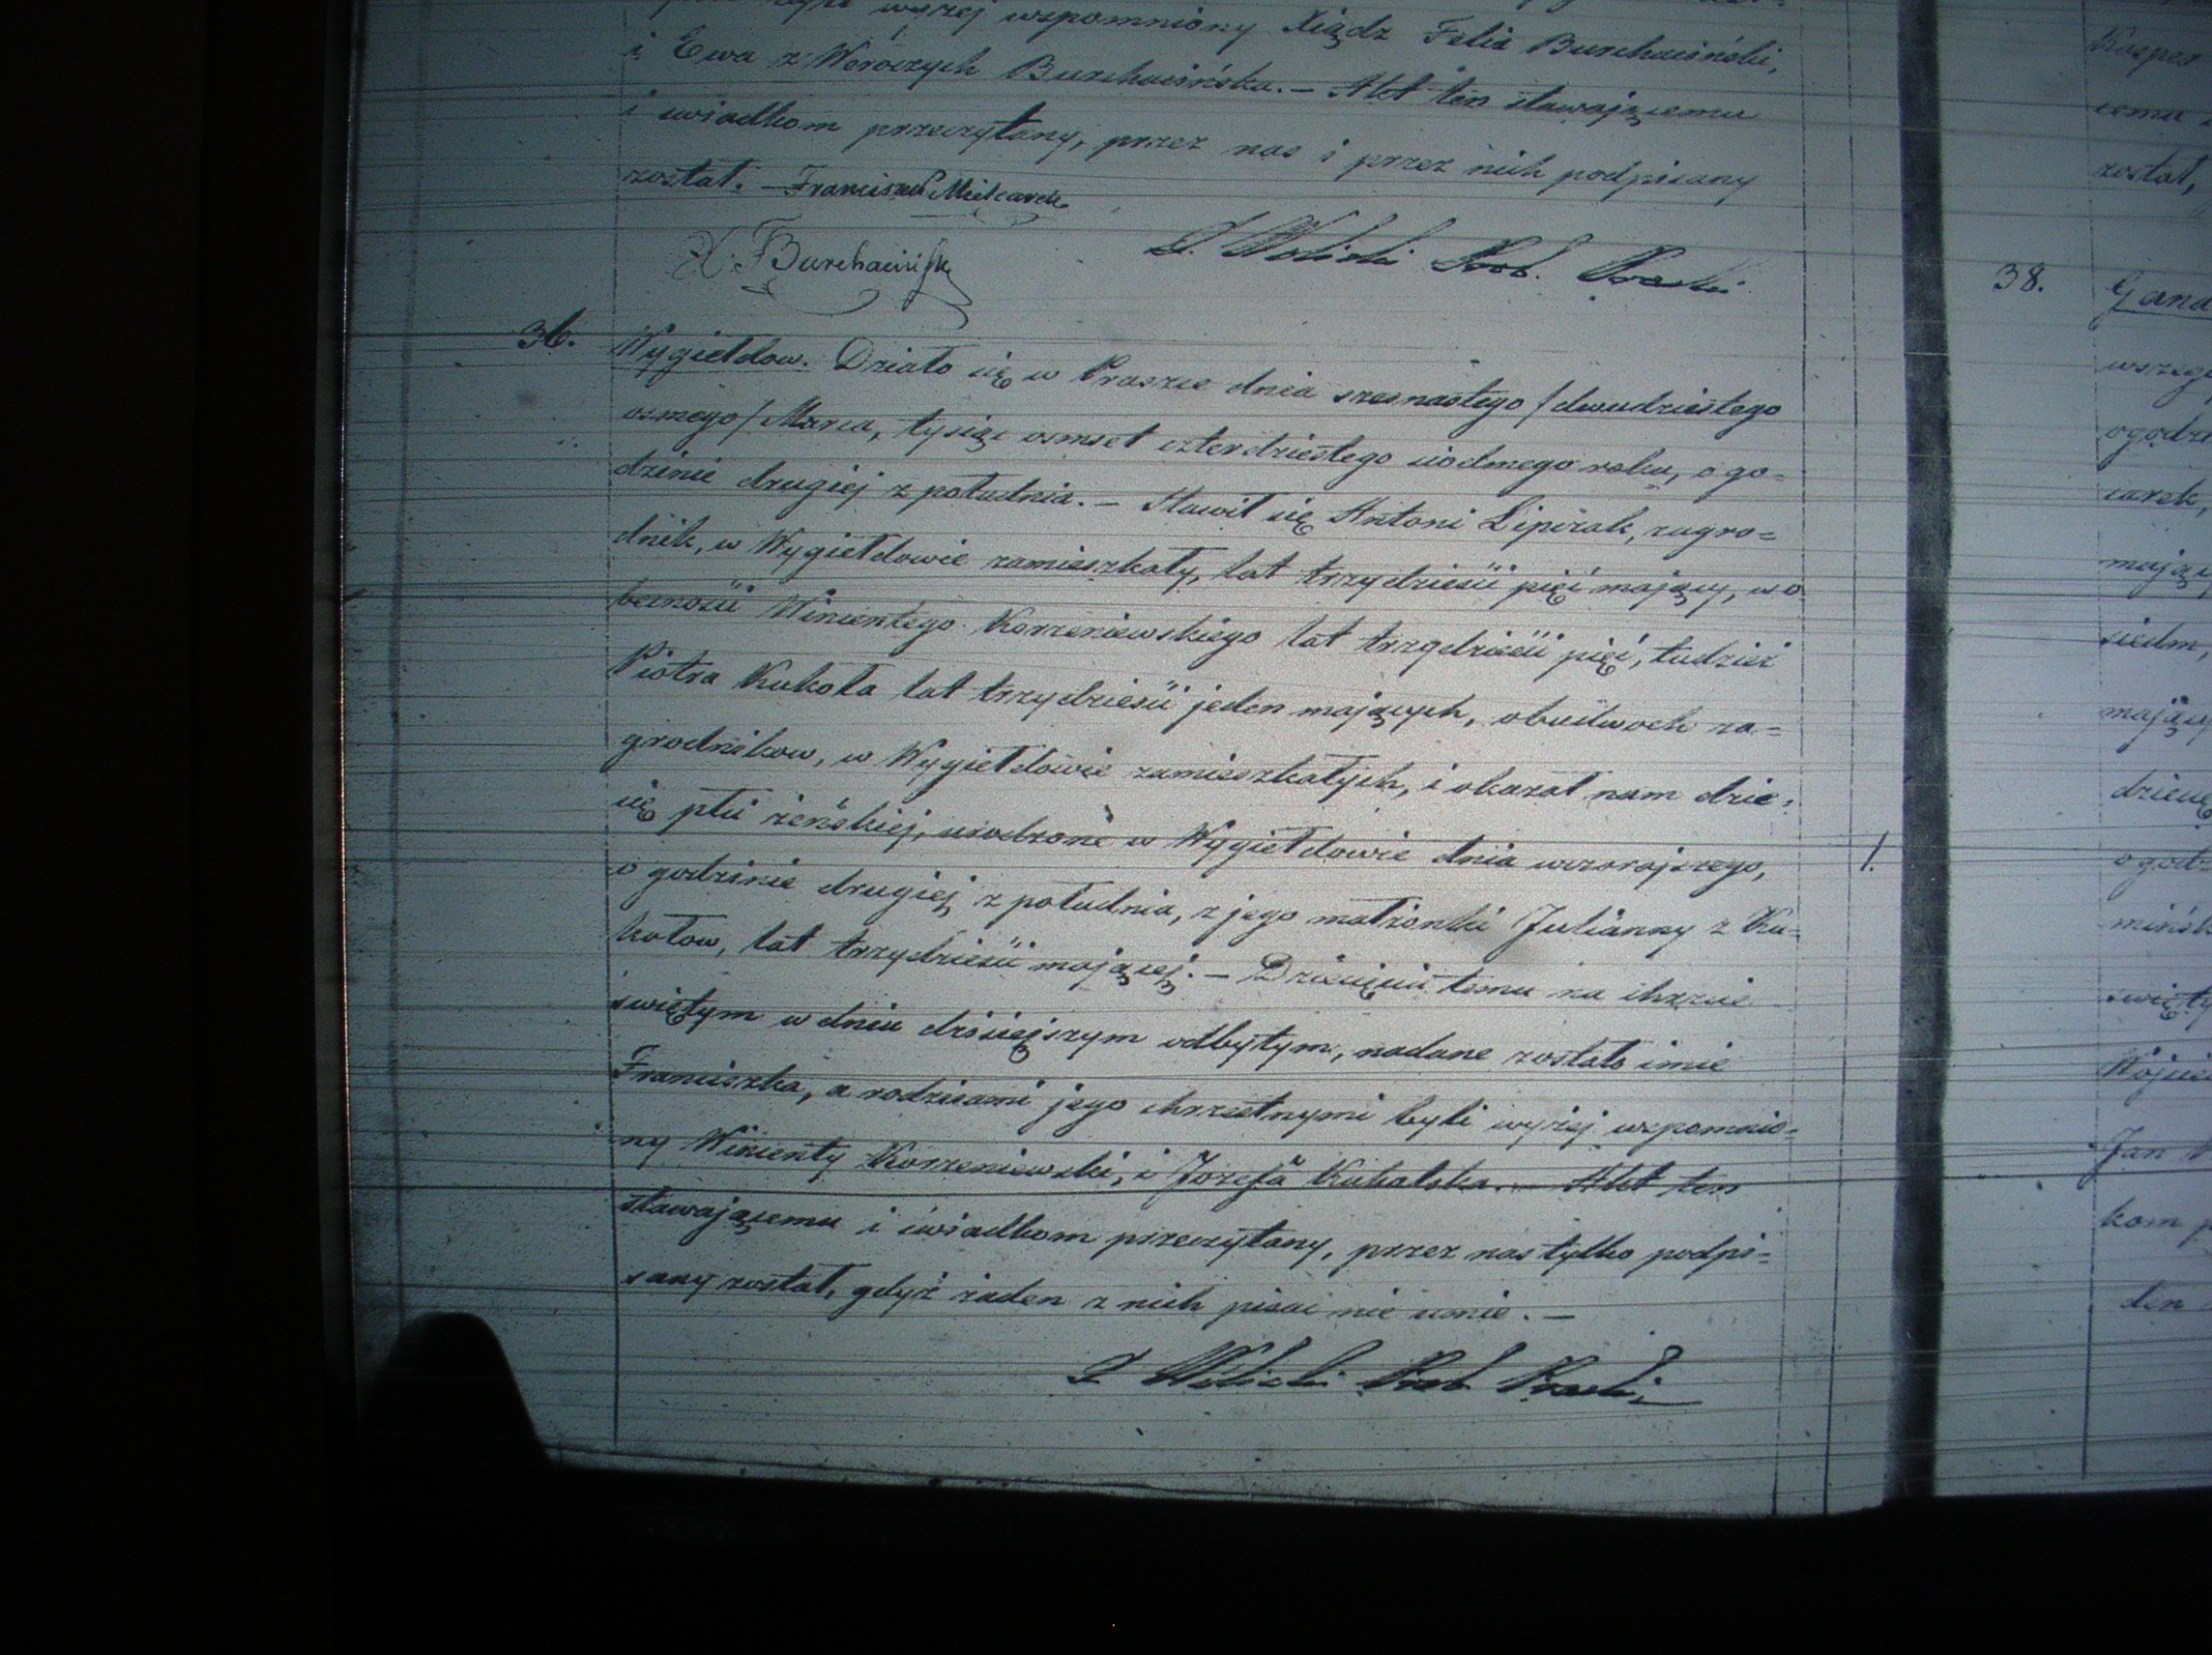 wyżej wzpomniony Xiądz Felix Burchaciński,
i Ewa z Burchacińska. — Akt ten stawającemu
i swiadkom przeczytany, przez nas i przez nich podpisany
został. — Franciszek Mielcarek
X. Burchacińsk
X. Wolicki Prob. Praszki
36. Wygiełdow. Działo się w Praszce dnia szesnastego /dwudziestego
osmego/ Marca, tysiąc osmset czterdziestego siodmego roku, o go=
dzinie drugiej z południa. — Stawił się Antoni Lipczak, zagro=
dnik, w Wygiełdowie zamieszkały, lat trzydzieści pięć mający, w o
becności Wincentego Korzeniewskiego lat trzydzieści pięć, tudzież
Piotra Kukoła lat trzydzieści jeden mających, obudwoch za=
grodnikow, w Wygiełdowie zamieszkałych, i okazał nam dzie=
cię płci żeńskiej, urodzone w Wygiełdowie dnia wczorajszego,
o godzinie drugiej z południa, z jego małżonki Julianny z Ku=
kołow, lat trzydzieści mającej. — Dziecięciu temu na chrzcie
świętym w dniu dzisiejszym odbytym, nadane zostało imie
Franciszka, a rodzicami jego chrzestnymi byli wyżej wzpomnio=
ny Wincenty Korzeniewski, i Jozefa Kukalska. — Akt ten
stawającemu i swiadkom przeczytany, przez nas tylko podpi=
sany został, gdyż żaden z nich pisać nie umie. —
X Wolicki Prob Praszki
1.
został,
38.
mają
siedm,
mający
Jan
kom